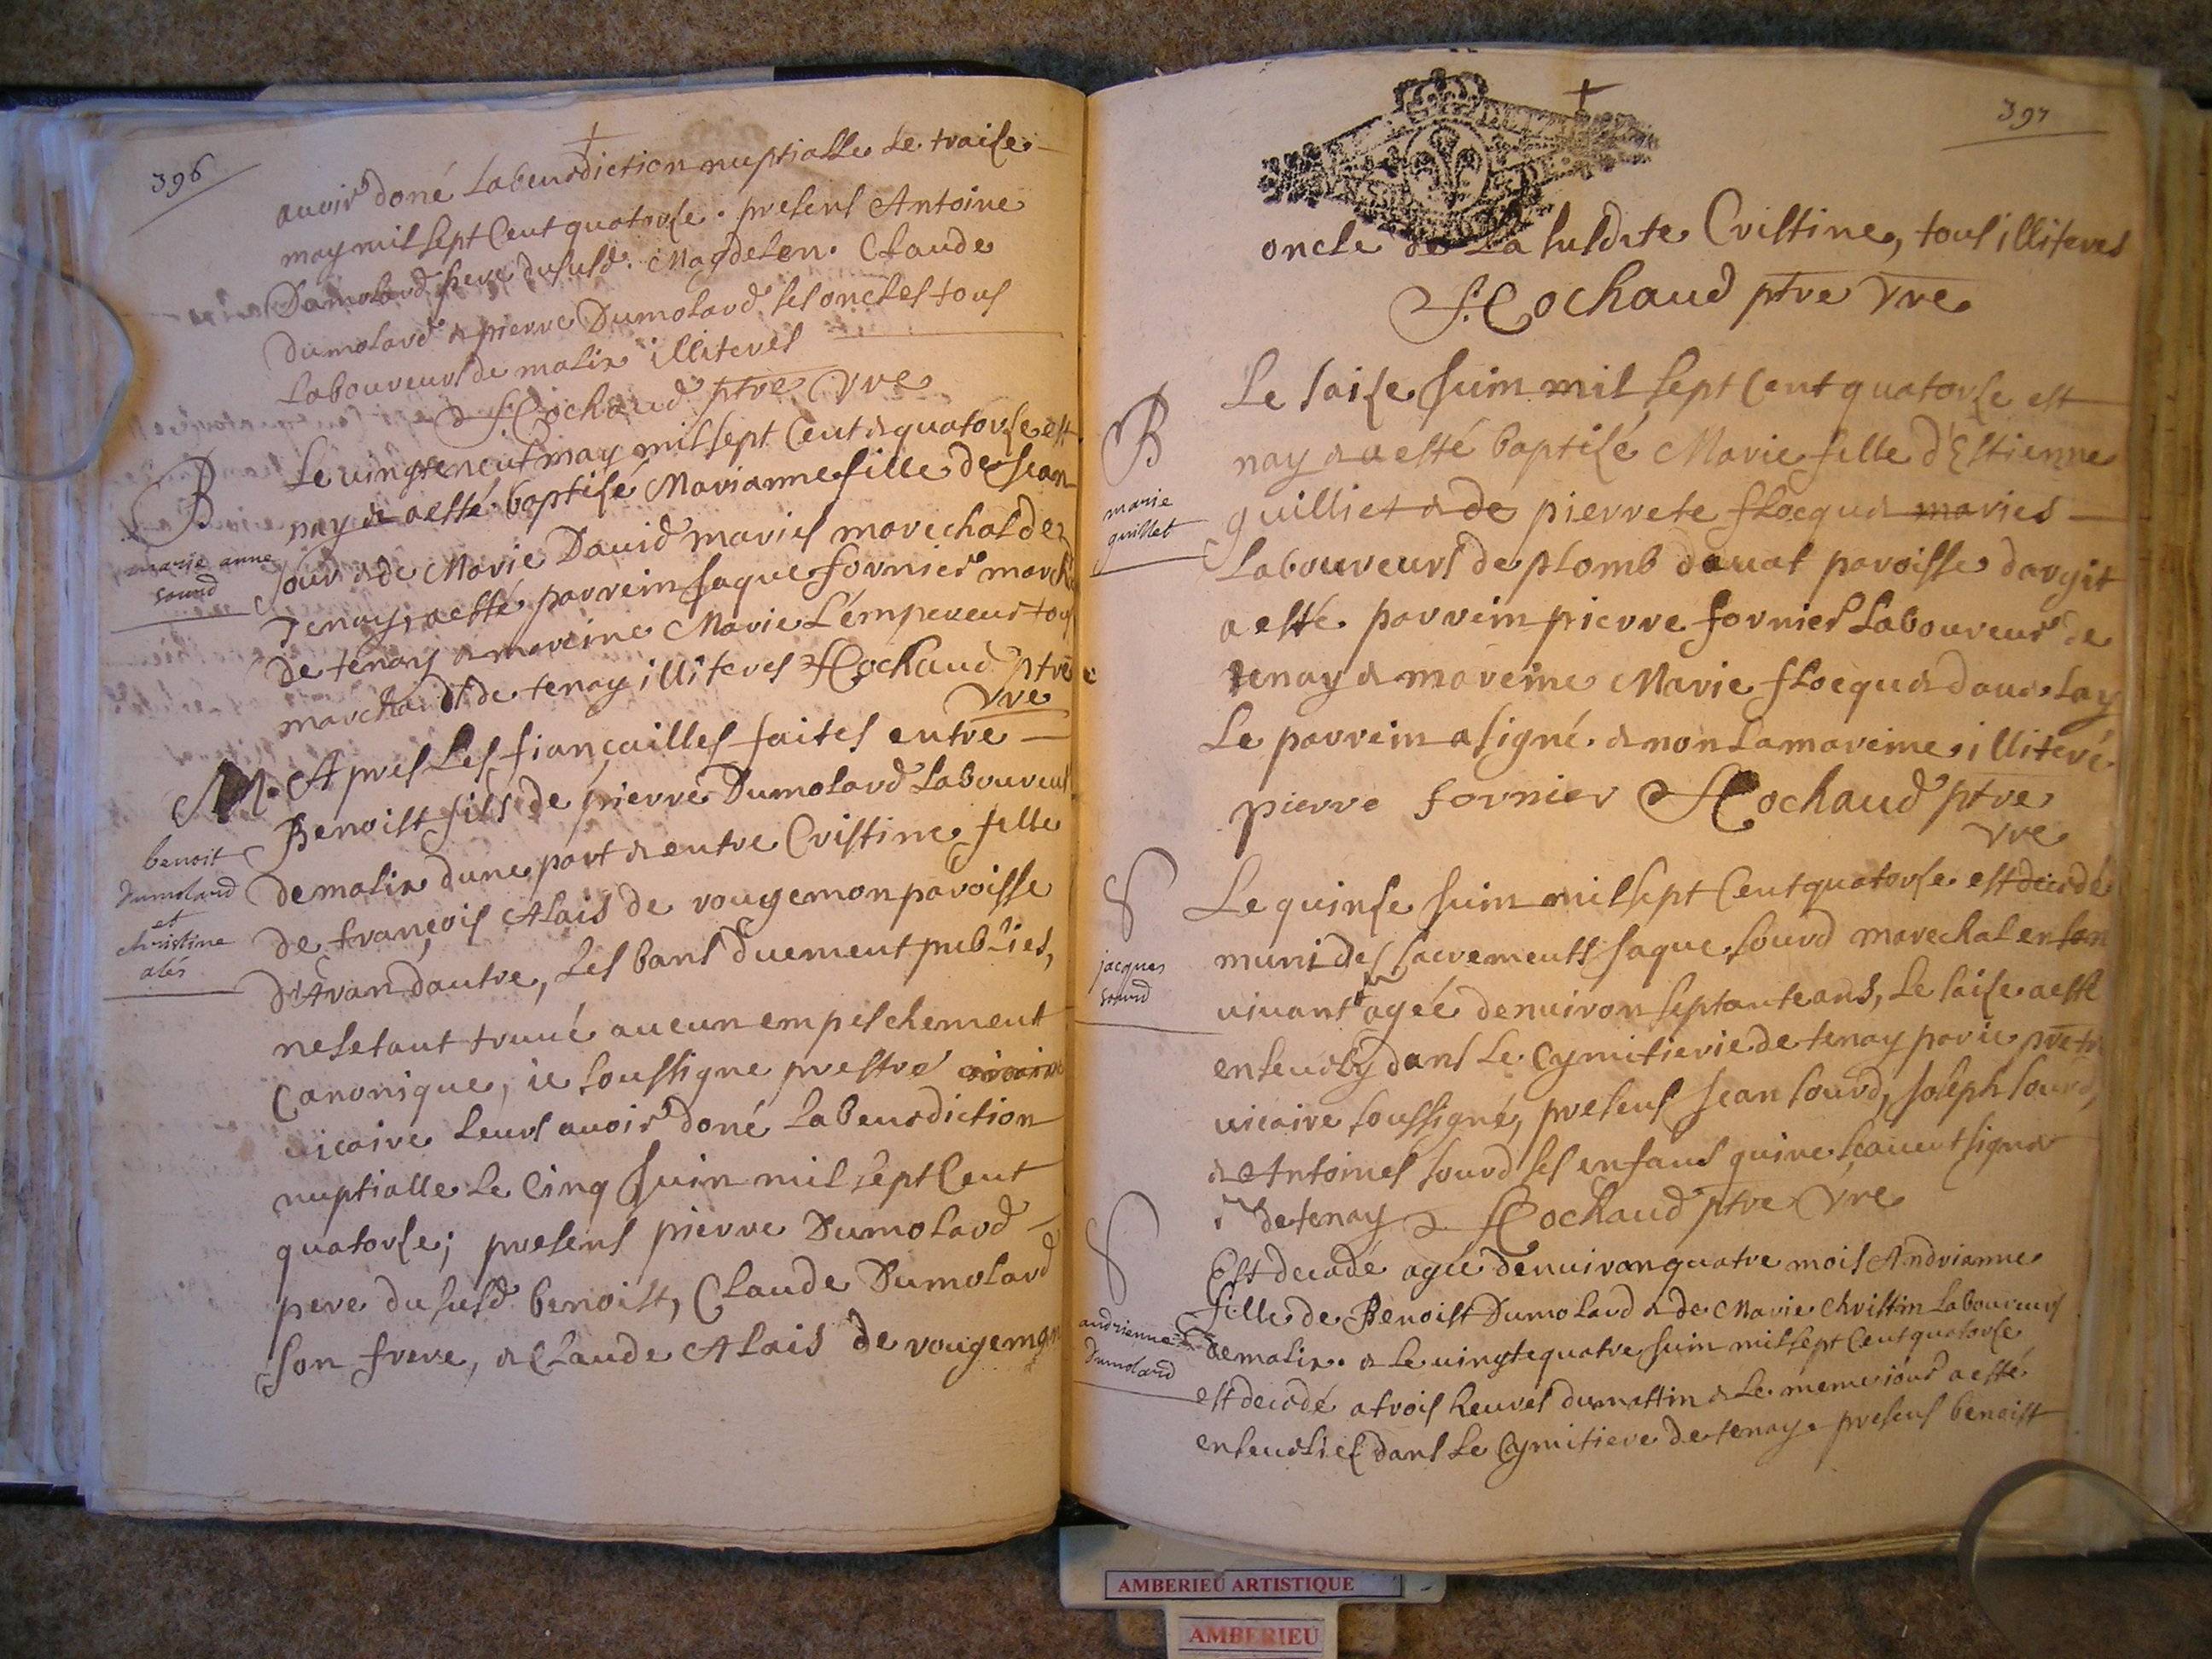 396
avoir doné la benediction nuptialle le traise
may mil sept Cent quatorse. presens Antoine
Dumolard pere du susd. Magdelen. Claude
Dumolard & pierre Dumolard ses oncles tous
laboureurs de malix illiterés
F. Cochaud ptre vre
B
marie anne
sourd
Le vingteneuf may mil sept Cent & quatorse est
nay & a esté baptisé Marianne fille de Jean
sourd & de Marie David mariés marechal de
Tenay, a esté parrein Jaque fornier march
de tenay & mareine Marie L'empereur tou
marchandt de tenay illiteres F Cochaud ptre
vre
M.
benoit
dumolard
et
christine
alés
Apres les fiançailles faites entre
Benoist fils de pierre Dumolard laboureur
de malix dune part & entre Cristine fille
de françois Alais de rougemon paroisse
d'Aran dautre, les bans duement publies,
ne setant truvé aucun empeschement
Canonique, ie soussigne prestre
vicaire leurs avoir doné la benediction
nuptialle le Cinq Juin mil sept Cent
quatorse; presens pierre Dumolard
pere du susd. benoist, Claude Dumolard
son frere, & Claude Alais de rougemon
397
oncle de la susdite Cristine, tous illiteres
F. Cochaud ptre vre
B
marie
guillet
Le saise Juin mil sept Cent quatorse est
nay & a esté baptisé Marie fille d'Estienne
guilliet & de pierrete flocque maries
laboureurs de plomb davat paroisse dargit
a esté parrein pierre fornier laboureur de
tenay & mareine Marie flocque
Le parrein a signé & non la mareine illiteré
pierre fornier F Cochaud ptre
vre
S
jacques
sourd
Le quinse Juin mil sept Cent quatorse est decedé
muni des sacrements Jaque sourd marechal en son
vivant agée denviron septante ans, Le saise a esté
ensevely dans le Cymitierie de tenay par ie pretre
vicaire soussigné, presens Jean sourd, Joseph sourd,
& Antoines sourd ses enfans qui ne scavent signer
de tenay F Cochaud ptre vre
S
andrienne
dumolard
Est decedé agée denviron quatre mois Andrianne
fille de Benoist Dumolard & de Marie Christin laboureurs
de malix. & le vingtequatre Juin mil sept Cent quatorse
est decedé a trois heures du mattin & le meme iour a esté
ensevelie dans le Cymitiere de tenay. presens benoist
AMBERIEU ARTISTIQUE
AMBERIEU